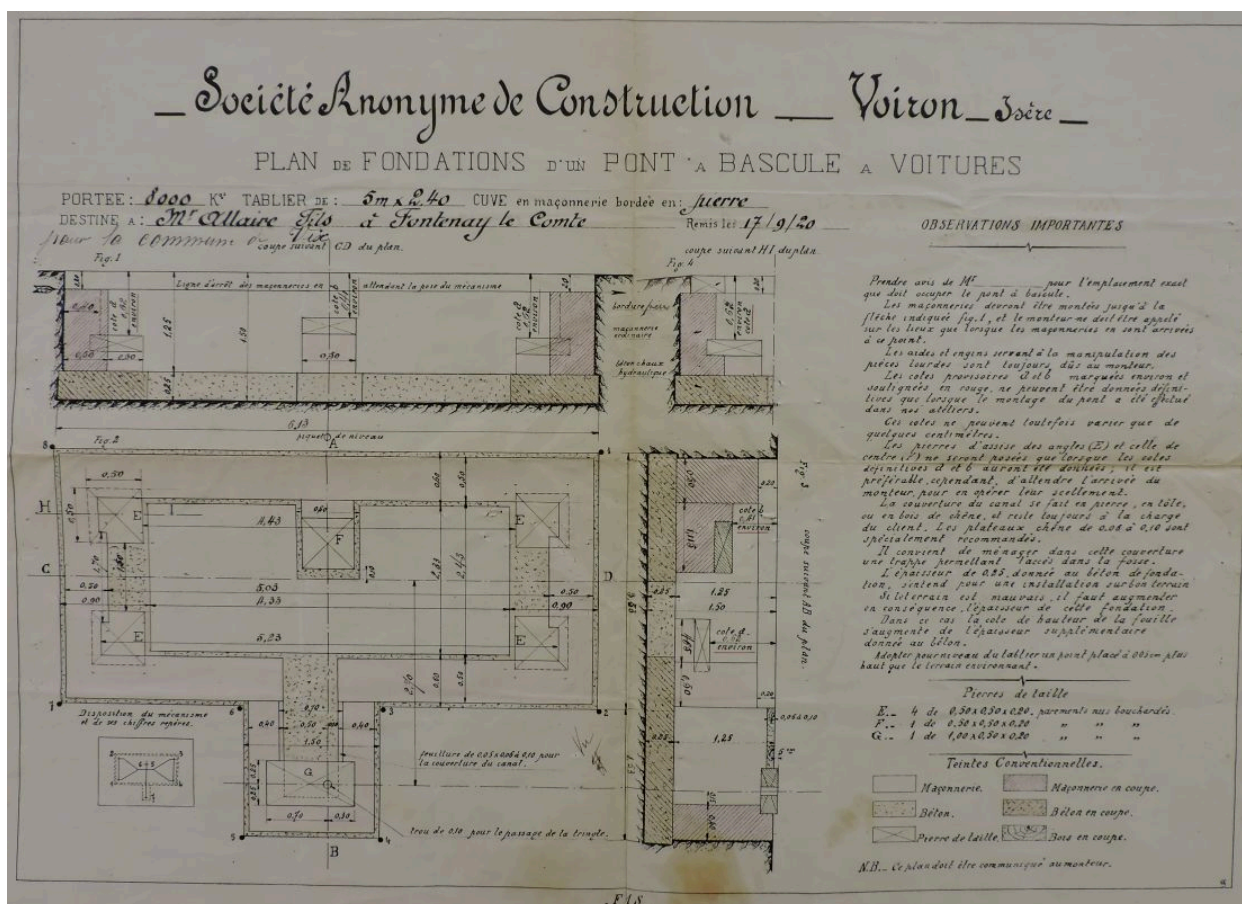 Société Anonyme de Construction Voiron Isère
PLAN DE FONDATIONS D'UN PONT A BASCULE A VOITURES
PORTÉE: 8000 Kg TABLIER DE: 5m x 2,40 CUVE en maçonnerie bordée en: pierre
DESTINÉ A: Mr Allaire Fils à Fontenay le Comte Remis le: 17/9/20
pour la commune de Vix
coupe suivant CD du plan.
Fig. 1
coupe suivant HI du plan.
Fig. 4
Ligne d'arrêt des maçonneries en attendant la pose du mécanisme
0,40
cote d
0,52
environ
1,25
1,50
cote b
0,41
environ
0,50
0,25
bordure pierre
maçonnerie
ordinaire
béton chaux
hydraulique
6,13
piquet de niveau
Fig. 2
8
A
1
0,50
H
I
E
4,43
0,60
F
E
C
D
0,50
5,03
2,45
0,90
5,23
E
E
7
6
3
2
Disposition du mécanisme
et de ses chiffres repères.
0,40
0,50
0,40
1,50
G
0,70
0,30
5
4
B
feuillure de 0.05x0.05 à 0,10 pour
la couverture du canal.
trou de 0,10 pour le passage de la tringle.
Fig. 3
coupe suivant AB du plan.
cote b
0,41
environ
1,25
1,50
cote d
0,52
environ
0,20
1,25
OBSERVATIONS IMPORTANTES
Prendre avis de Mr pour l'emplacement exact
que doit occuper le pont à bascule.
Les maçonneries devront être montées jusqu'à la
flèche indiquée fig.1, et le monteur ne doit être appelé
sur les lieux que lorsque les maçonneries en sont arrivées
à ce point.
Les aides et engins servant à la manipulation des
pièces lourdes sont toujours dûs au monteur.
Les cotes provisoires d et b marquées environ et
soulignées en rouge, ne peuvent être données défini-
tives que lorsque le montage du pont a été effectué
dans nos ateliers.
Ces cotes ne peuvent toutefois varier que de
quelques centimètres.
Les pierres d'assise des angles (E) et celle de
centre (F) ne seront posées que lorsque les cotes
définitives d et b auront été données; il est
préférable, cependant, d'attendre l'arrivée du
monteur, pour en opérer leur scellement.
La couverture du canal se fait en pierre, en tôle,
ou en bois de chêne, et reste toujours à la charge
du client. Les plateaux chêne de 0.08 à 0,10 sont
spécialement recommandés.
Il convient de ménager dans cette couverture
une trappe permettant l'accès dans la fosse.
L'épaisseur de 0.25, donnée au béton de fonda-
tion, s'intend pour une installation sur bon terrain
Si le terrain est mauvais, il faut augmenter
en conséquence, l'épaisseur de cette fondation.
Dans ce cas la cote de hauteur de la fouille
s'augmente de l'épaisseur supplémentaire
donnée au béton.
Adopter pour niveau du tablier un point placé à 0,05m plus
haut que le terrain environnant.
Pierres de taille
E._ 4 de 0,50x0,50x0.20, parements nus bouchardés.
F._ 1 de 0.50x0,50x0.20 „ „ „
G._ 1 de 1,00x0,50x0.20 „ „ „
Teintes Conventionnelles.
Maçonnerie. Maçonnerie en coupe.
Béton. Béton en coupe.
Pierre de taille. Bois en coupe.
N.B._ Ce plan doit être communiqué au monteur.